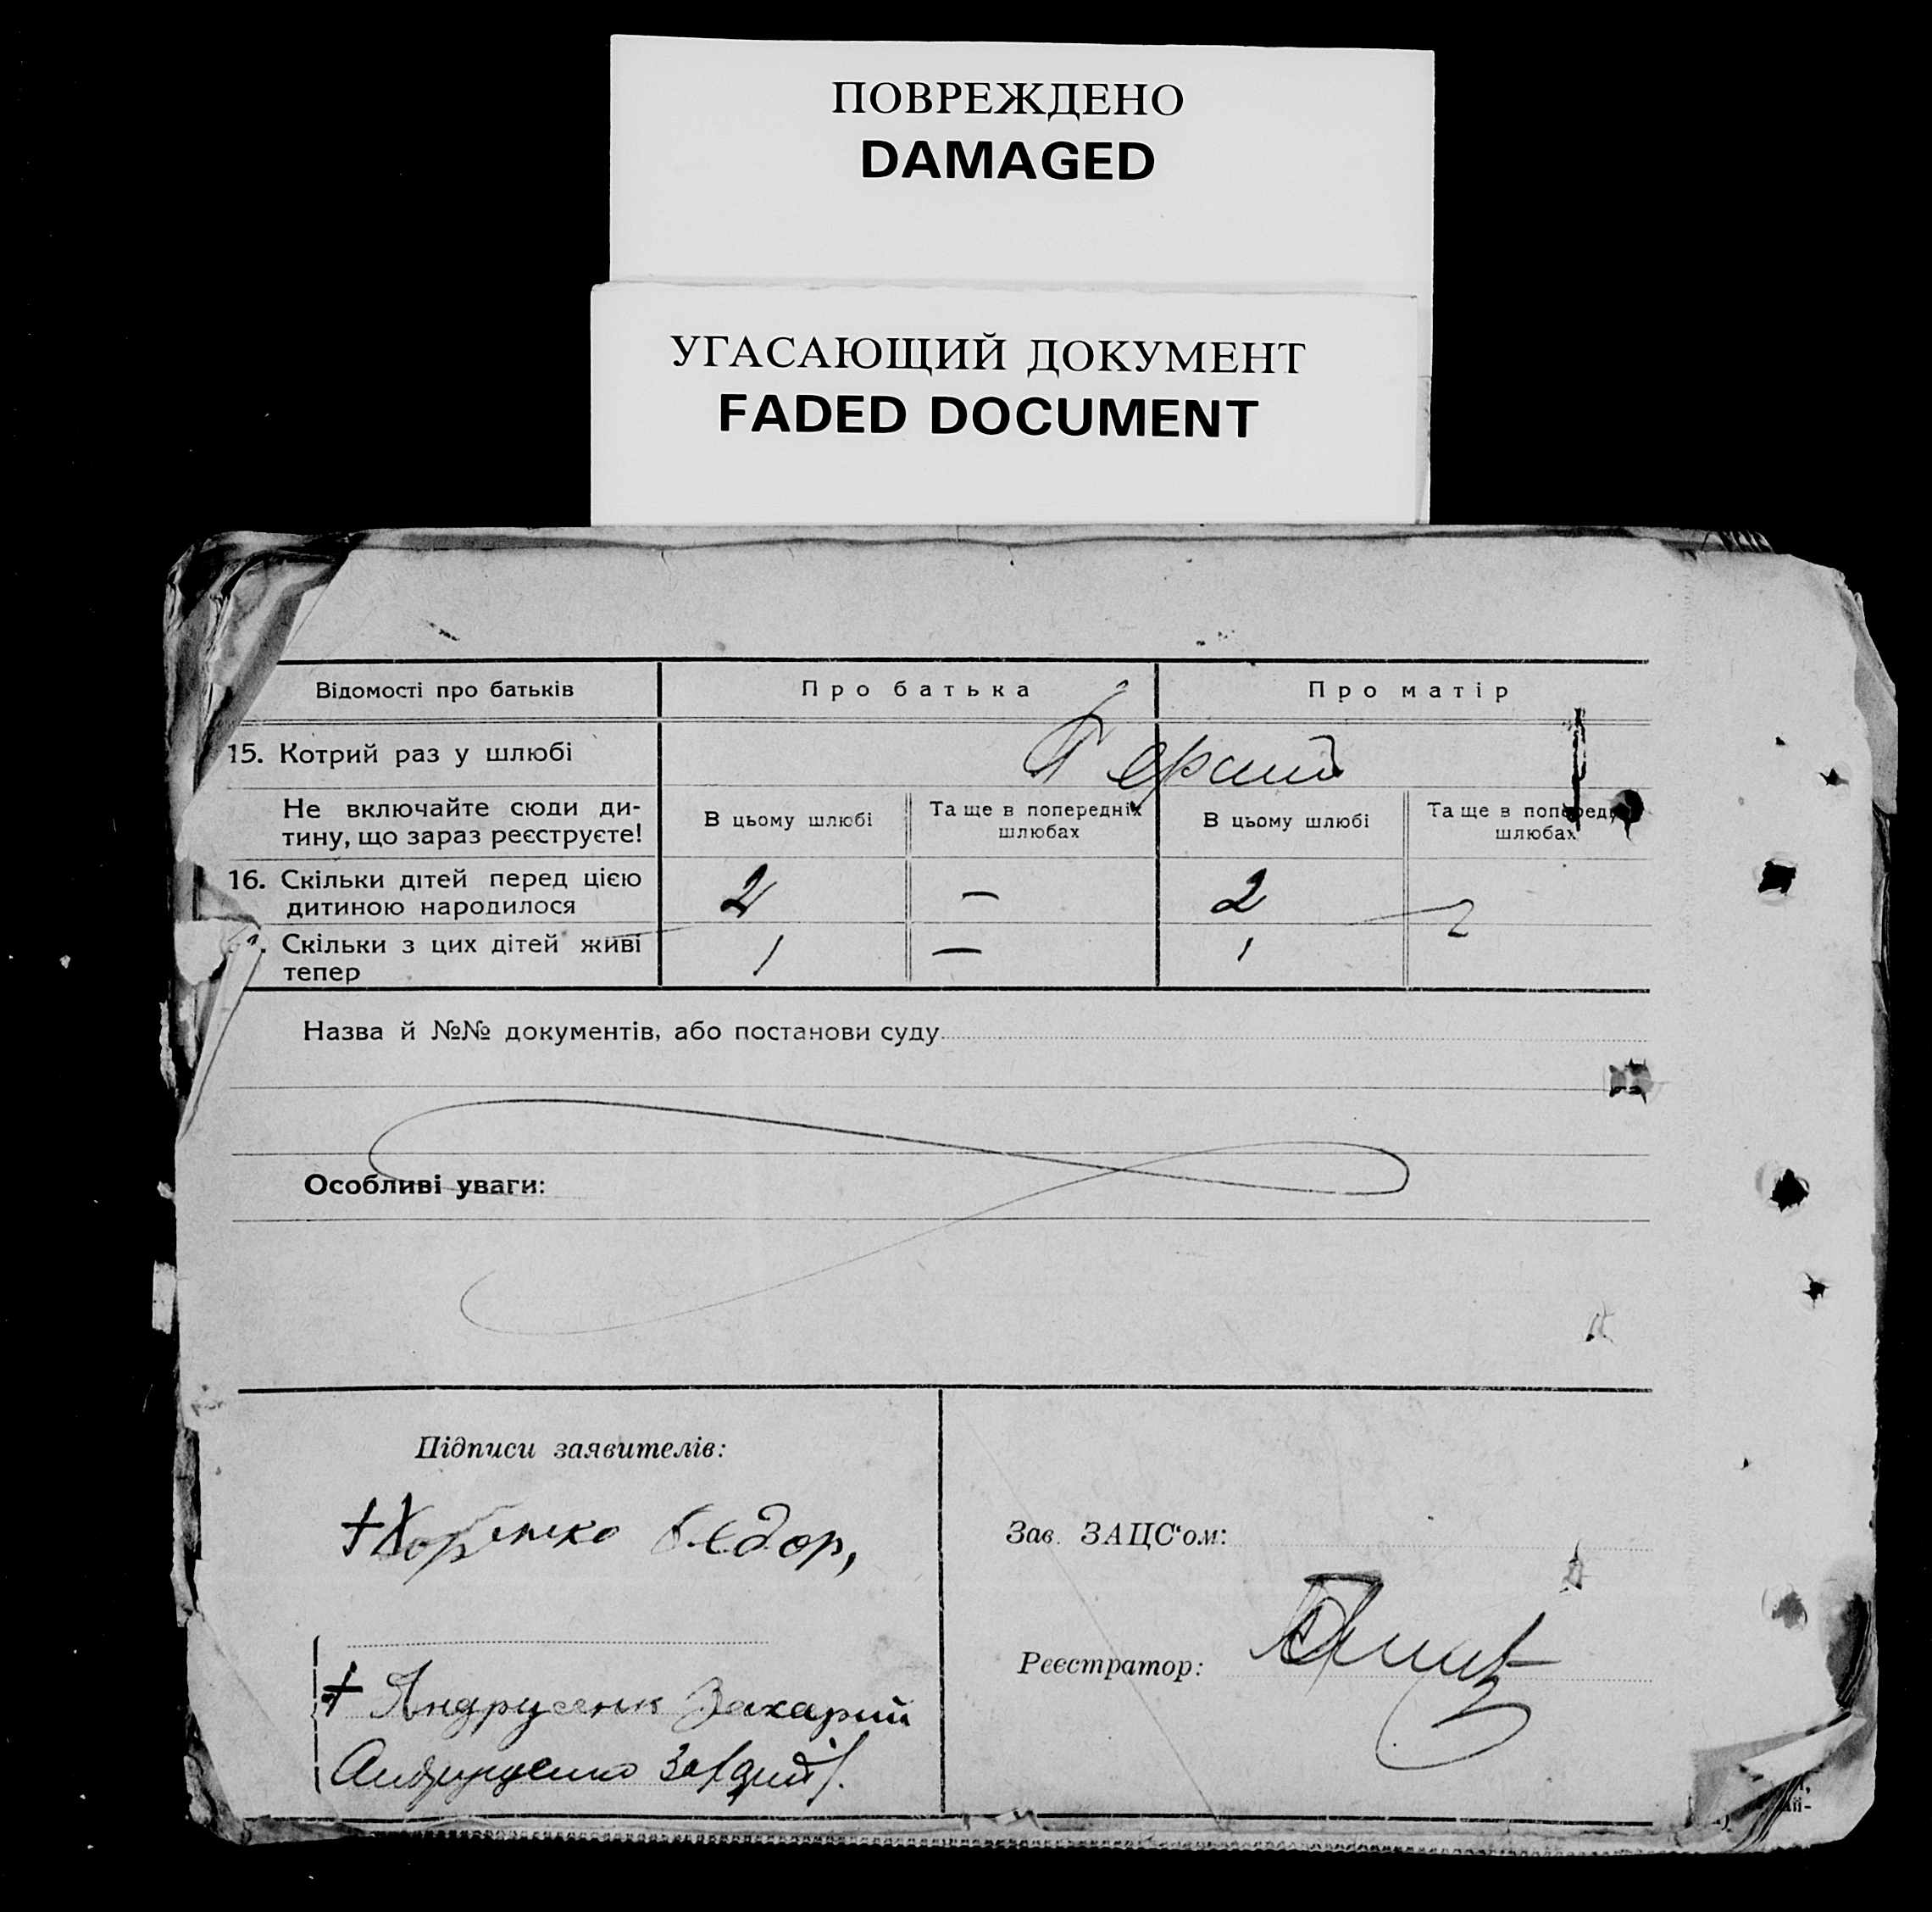 ПОВРЕЖДЕНО
DAMAGED
УГАСАЮЩИЙ ДОКУМЕНТ
FADED DOCUMENT
Відомості про батьків
Про батька
Про матір
15. Котрий раз у шлюбі
Перший
Не включайте сюди ди-
тину, що зараз реєструєте!
В цьому шлюбі
Та ще в попередніх
шлюбах
В цьому шлюбі
Та ще в попередн
шлюбах
16. Скільки дітей перед цією
дитиною народилося
2
—
2
Скільки з цих дітей живі
тепер
1
—
1
Назва й №№ документів, або постанови суду
Особливі уваги:
Підписи заявителів:
+ Федор,
+ Захарий
Зав. ЗАЦС'ом:
Реєстратор: